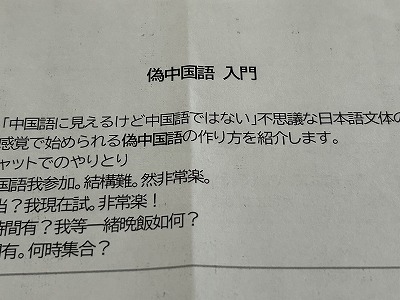 偽中国語 入門
「中国語に見えるけど中国語ではない」不思議な日本語文体の
感覚で始められる偽中国語の作り方を紹介します。
ャットでのやりとり
国語我参加。結構難。然非常楽。
当？我現在試。非常楽！
時間有？我等一緒晩飯如何？
有。何時集合？